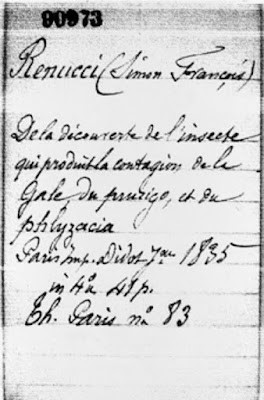 90973
Renucci (Simon François)
De la découverte de l'insecte
qui produit la contagion de la
Gale, du prurigo, et du
phlyzacia
Paris imp. Didot Jne 1835
in 4º 41 p.
Th. Paris nº 83